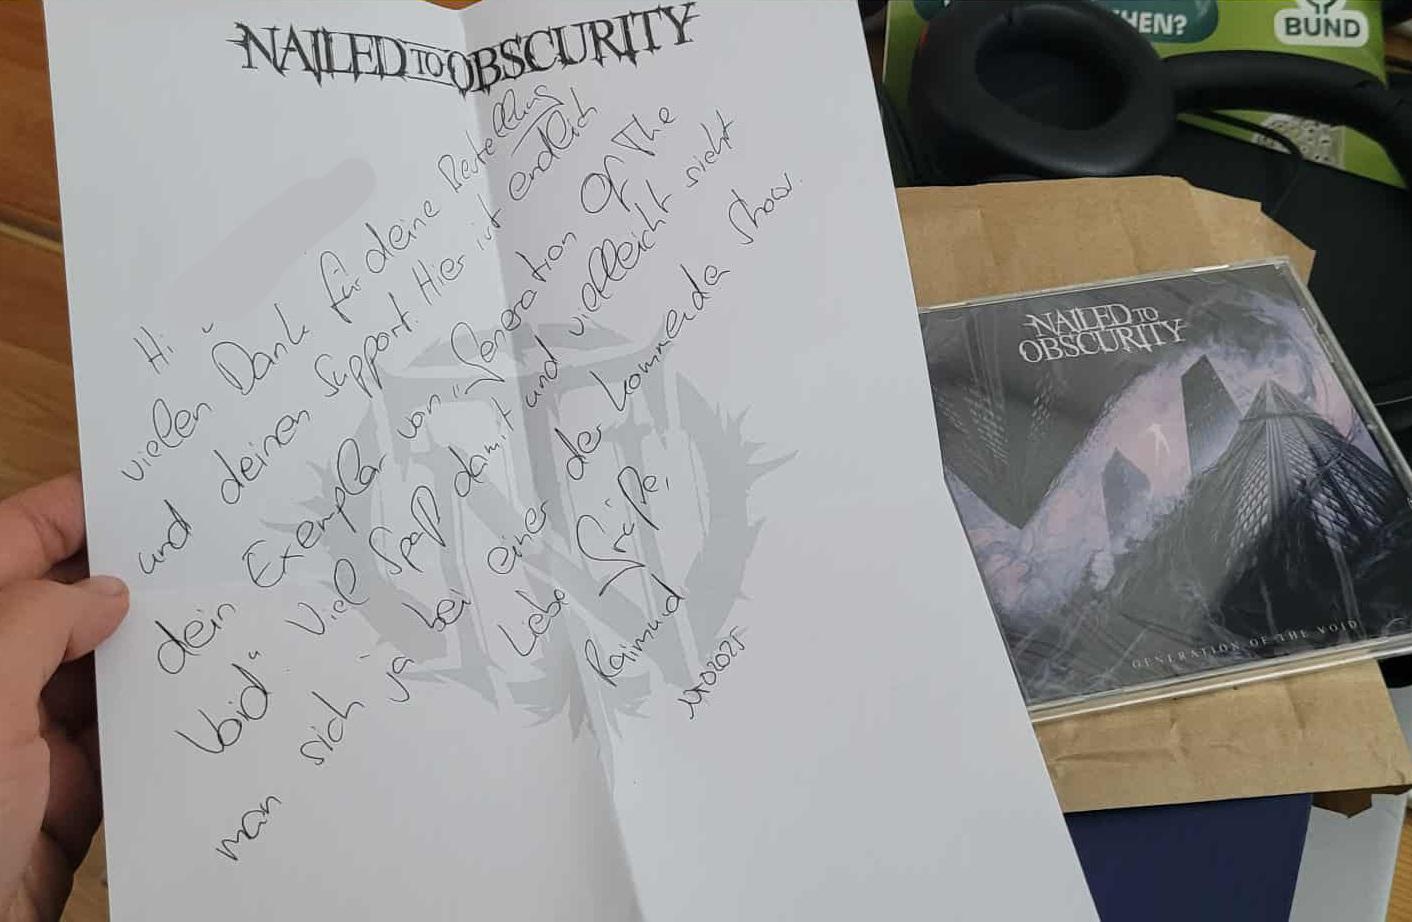 NAILED TO OBSCURITY
Hi
vielen Dank für deine Bestellung
und deinen Support. Hier ist endlich
dein Exemplar von „Generation Of The
Void“. Viel Spaß damit und vielleicht sieht
man sich ja bei einer der kommenden Show.
Liebe Grüße,
Raimund
NTO2025
HEN?
BUND
NAILED TO
OBSCURITY
GENERATION OF THE VOID